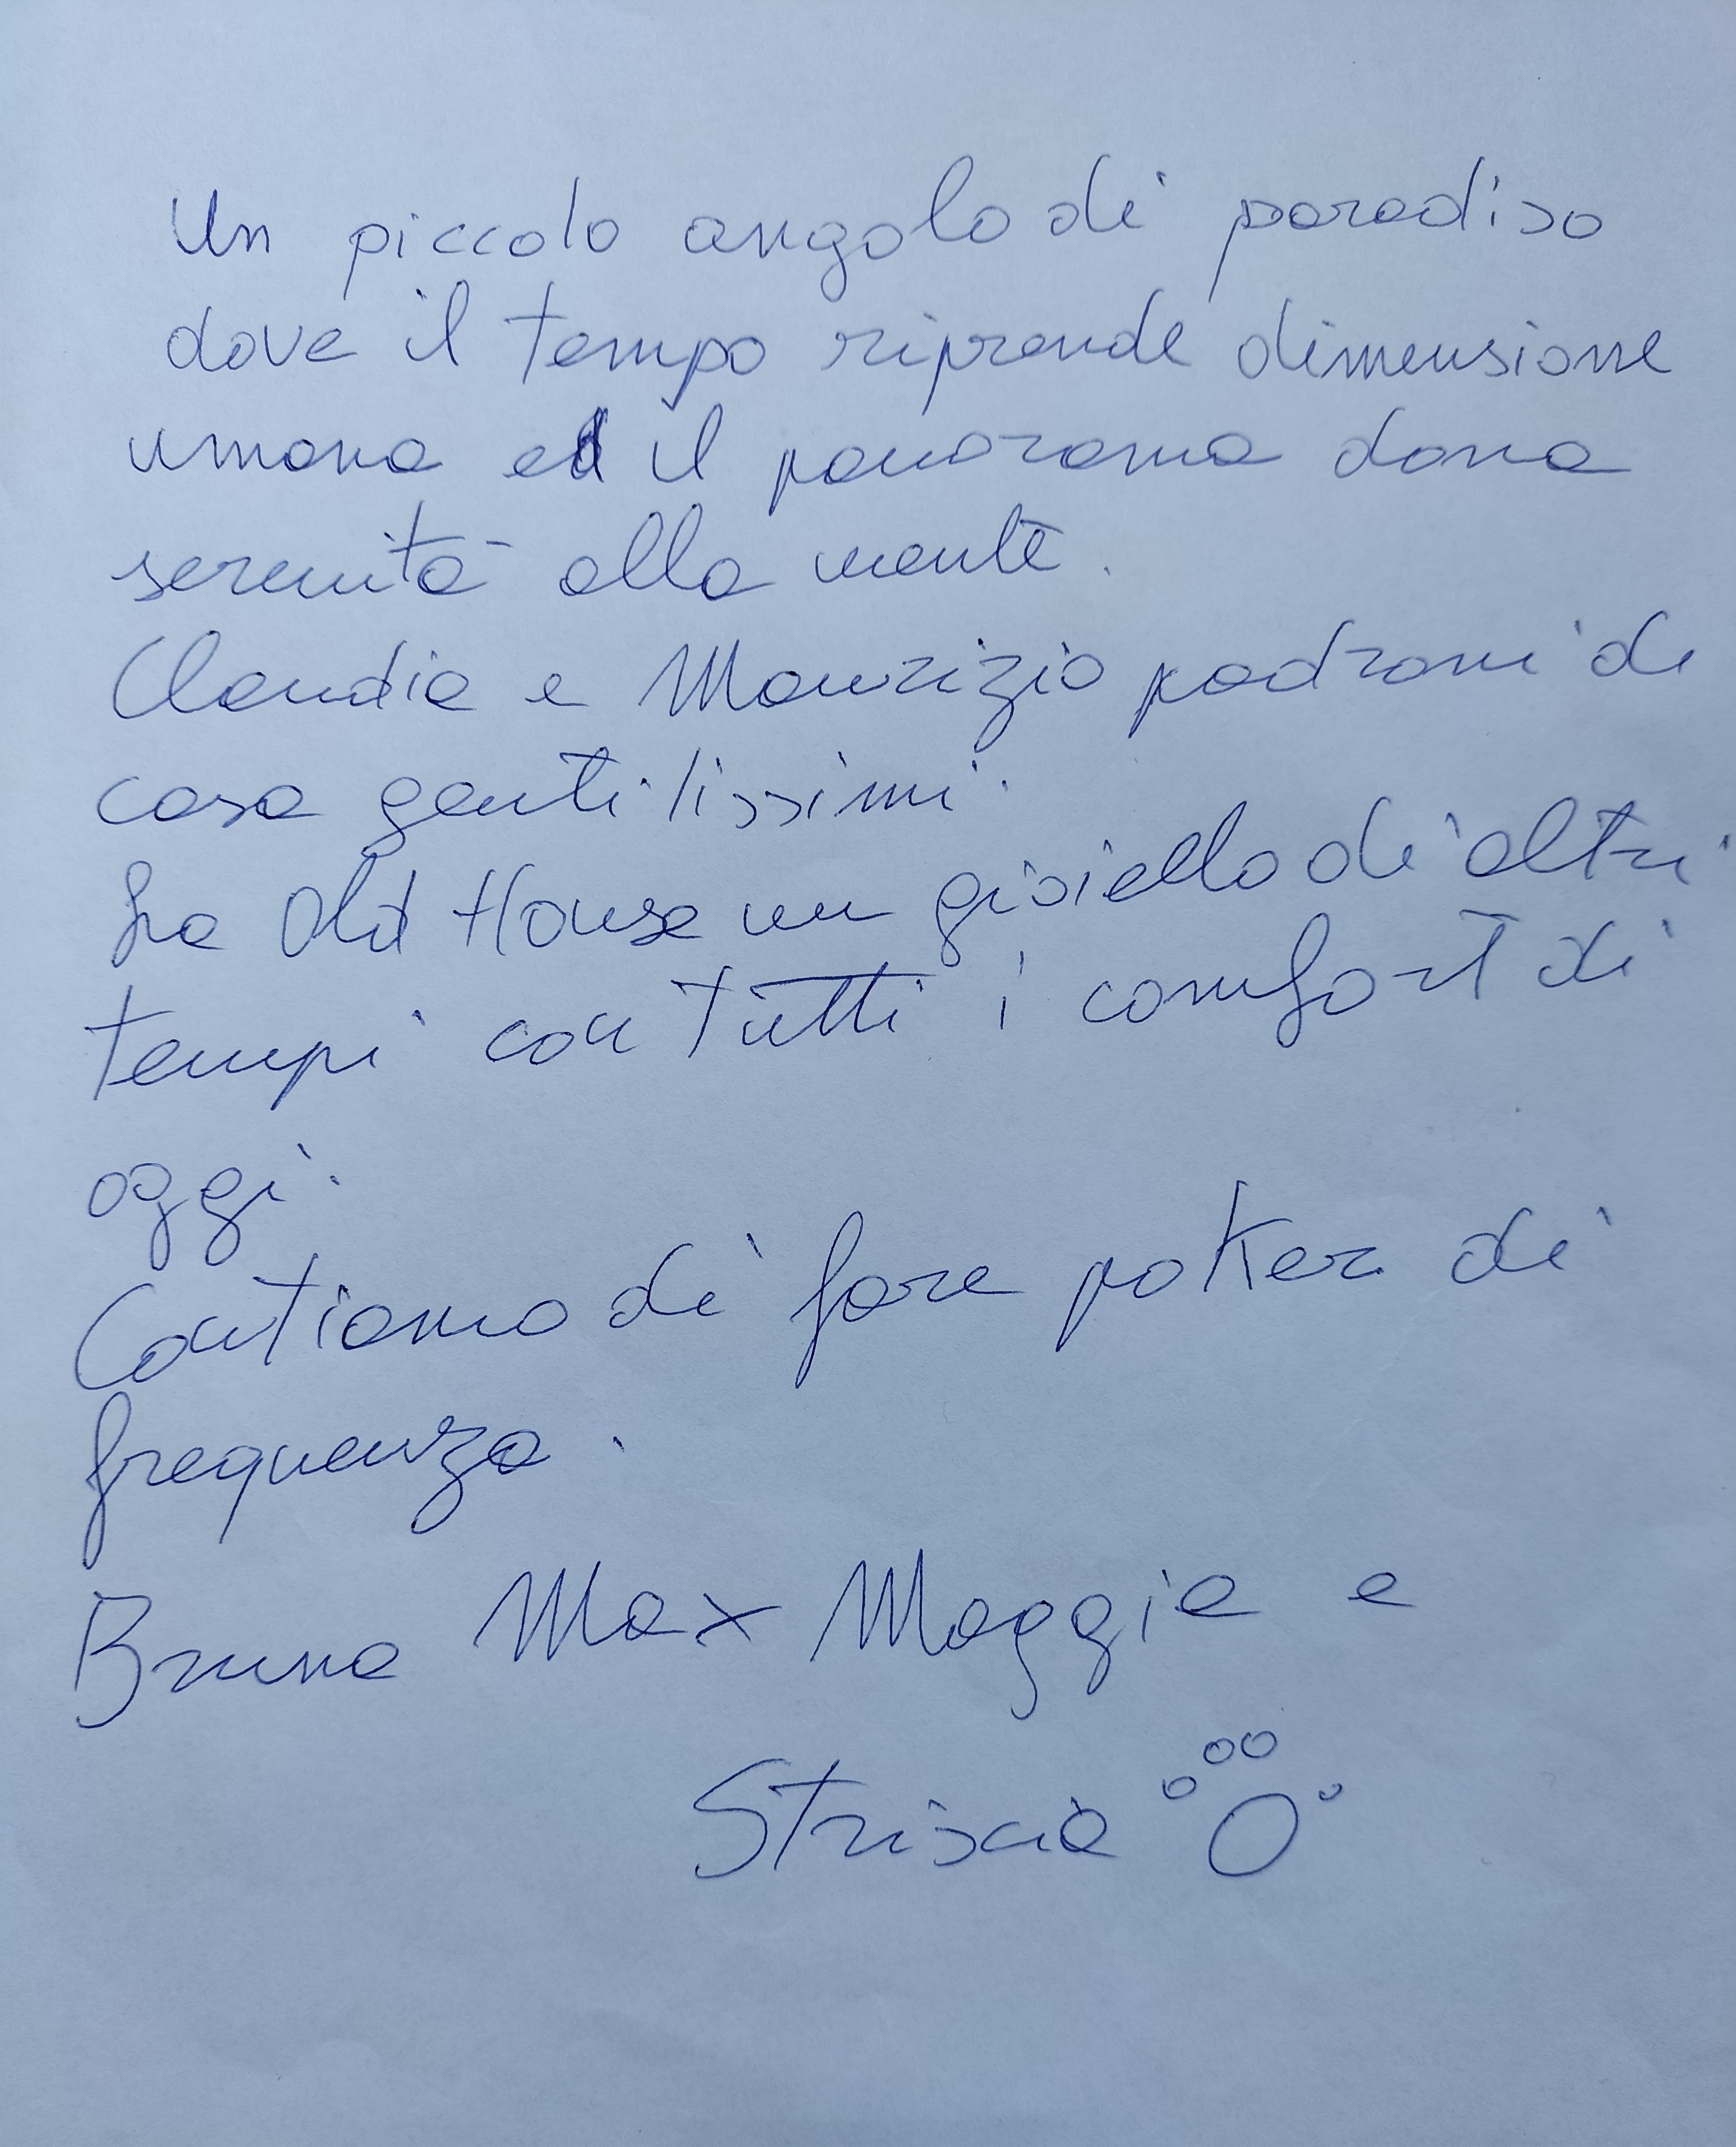 Un piccolo angolo di paradiso
dove il tempo riprende dimensione
umana ed il panorama dona
serenità alla mente.
Claudia e Maurizio padroni di
casa gentilissimi.
La Old House un gioiello di altri
tempi con tutti i comfort di
oggi.
Contiamo di fare poker di
frequenza.
Bruna Max Maggie e
Striscia